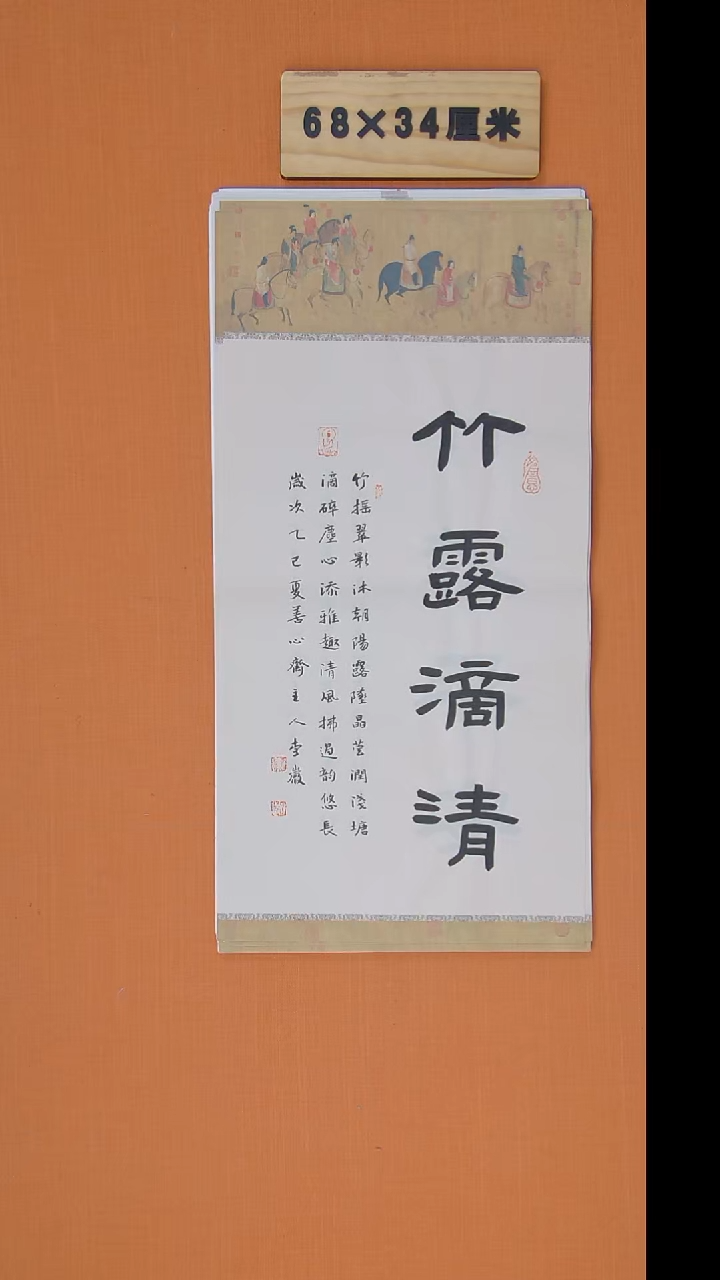 68×34厘米
竹露滴清
竹摇翠影沐朝陽露墜晶莹潤淺塘
滴碎塵心添雅趣清風拂過韵悠長
歲次乙巳夏善心齋主人李嚴